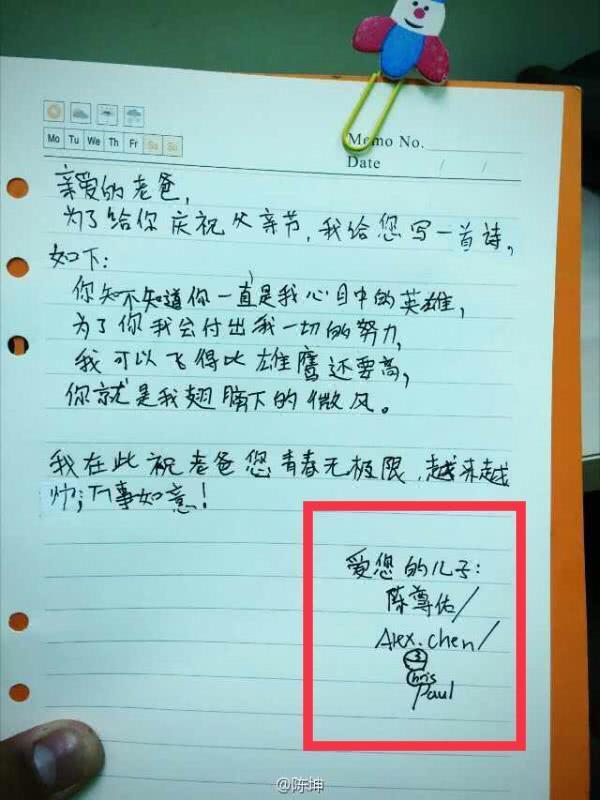 Mo Tu We Th Fr Sa Su
Memo No.
Date / /
亲爱的老爸，
为了给你庆祝父亲节，我给您写一首诗，
如下：
你知不知道你一直是我心目中的英雄，
为了你我会付出我一切的努力，
我可以飞得比雄鹰还要高，
你就是我翅膀下的微风。
我在此祝老爸您青春无极限，越来越
帅；万事如意！
爱您的儿子：
陈尊佑/
Alex.chen/
3
Chris
Paul
@陈坤